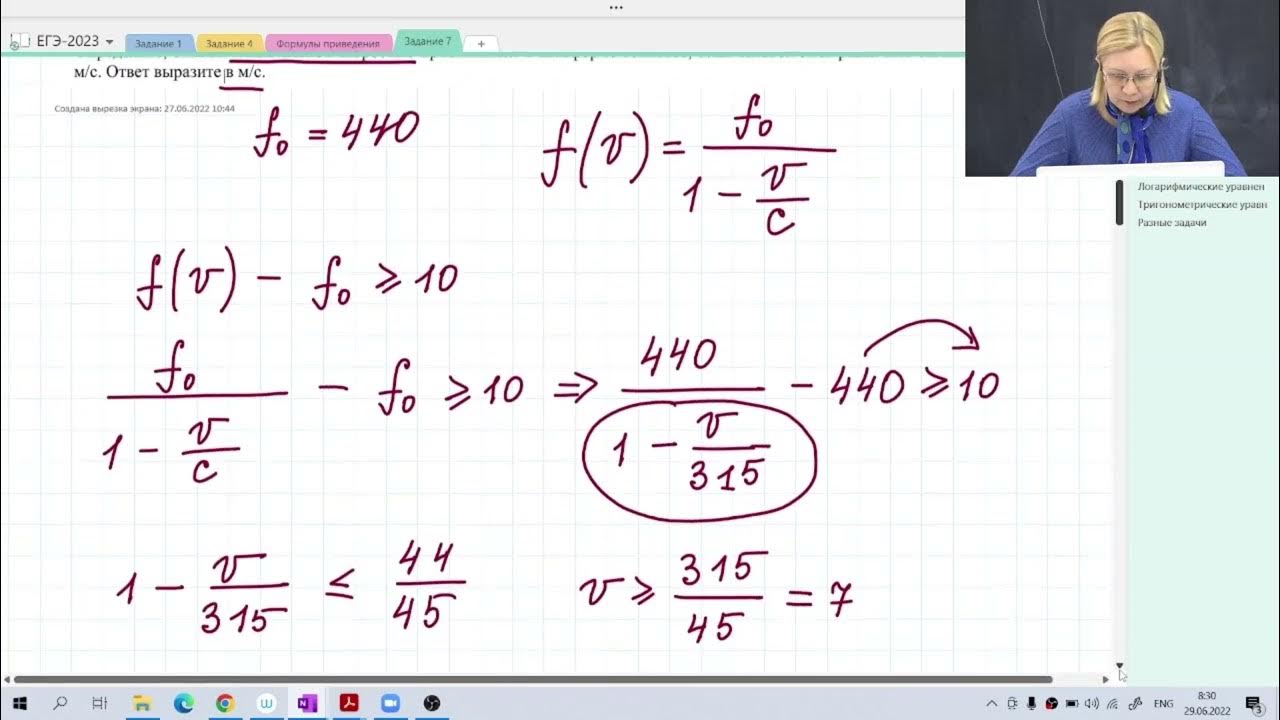 ...
ЕГЭ-2023
Задание 1
Задание 4
Формулы приведения
Задание 7
+
м/с. Ответ выразите в м/с.
Создана вырезка экрана: 27.06.2022 10:44
f₀ = 440
f(v) = f₀ / (1 - v/c)
f(v) - f₀ ⩾ 10
f₀ / (1 - v/c) - f₀ ⩾ 10 ⇒ 440 / (1 - v/315) - 440 ⩾ 10
1 - v/315 ≤ 44/45
v ⩾ 315/45 = 7
Логарифмические уравнен
Тригонометрические уравн
Разные задачи
ENG
8:30
29.06.2022
3